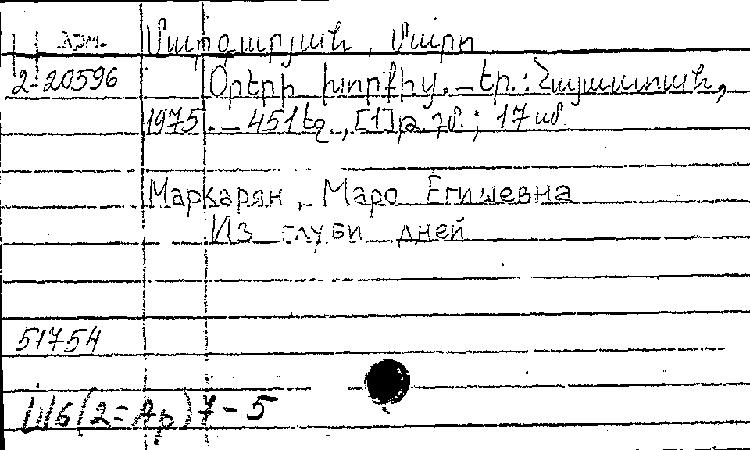 Арм. Մարգարյան, Մարո
2-20596 Օրերի խորքից. – Եր.: Հայաստան,
1975. – 451 էջ, [1] թ. դմ.; 17 սմ.
Маркарян, Маро Егишевна
Из глуби дней
51754
Ш6(2=Ар)7-5